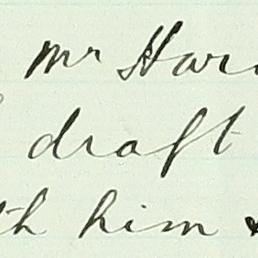 Mr Hari
draft
th him &